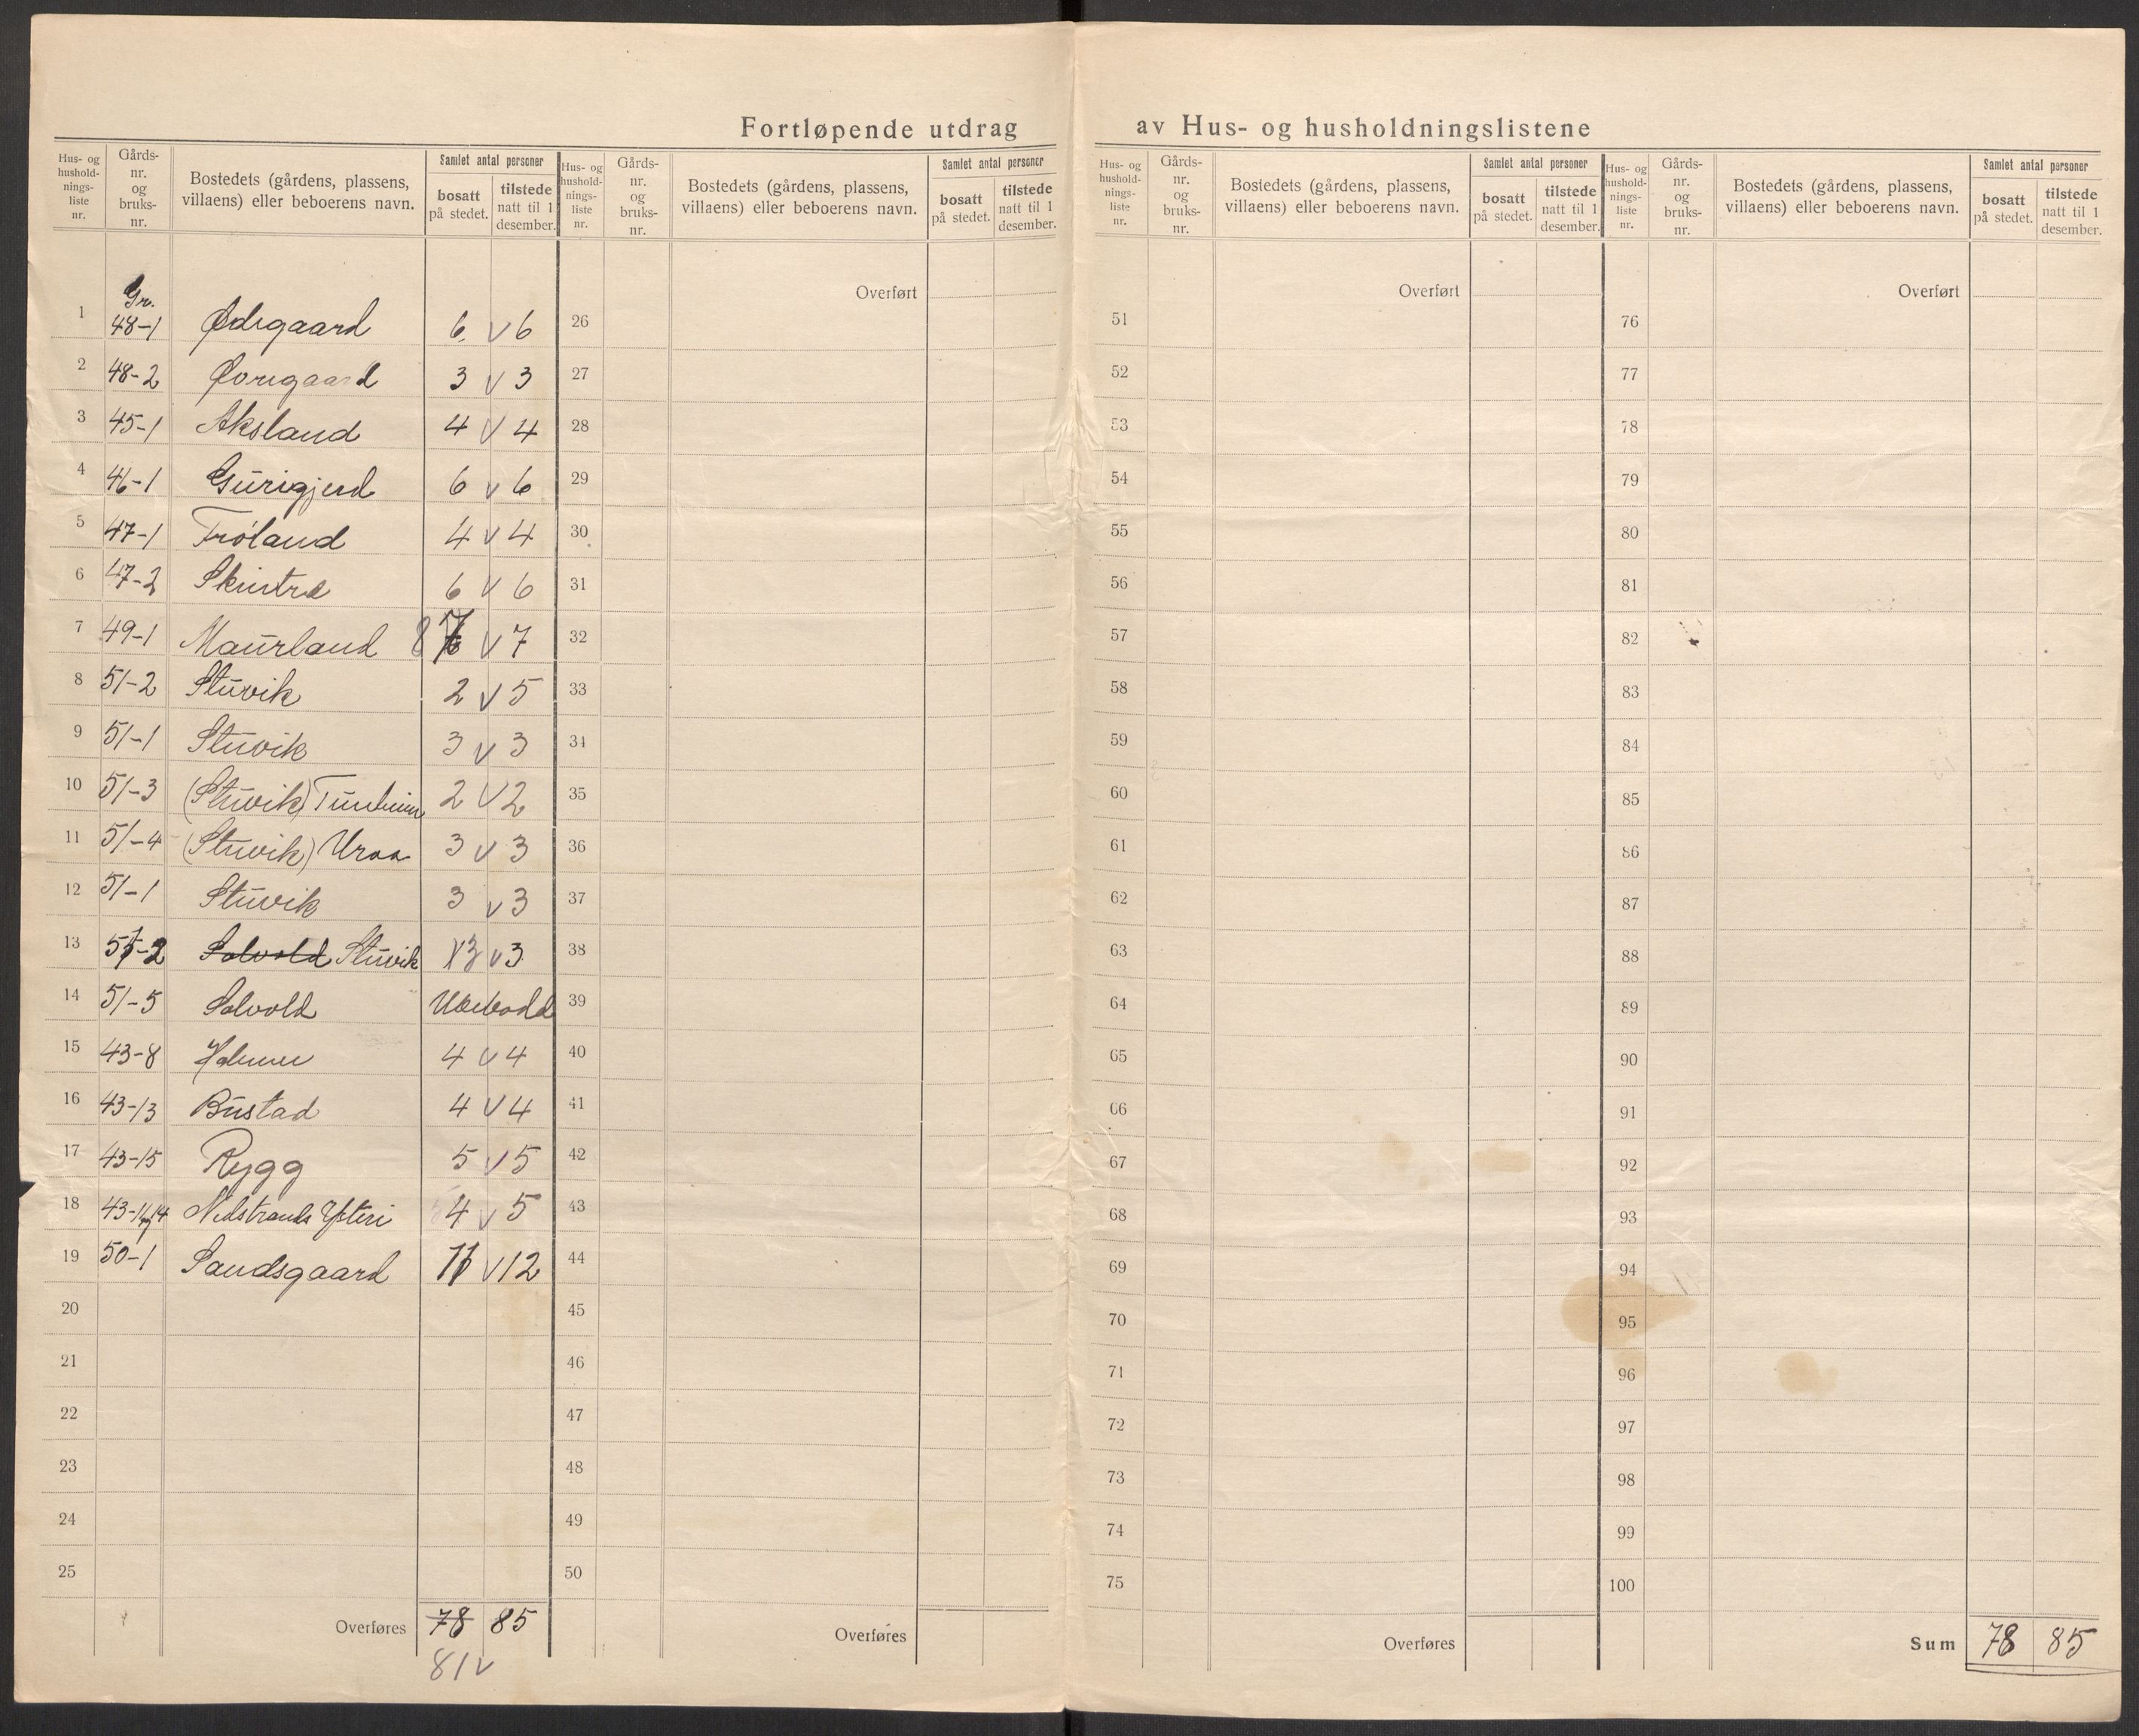 Fortløpende utdrag av Hus- og husholdningslistene
Hus- og hushold-nings-liste nr. Gårds-nr. og bruks-nr. Bostedets (gårdens, plassens, villaens) eller beboerens navn. Samlet antal personer bosatt på stedet. tilstede natt til 1 desember.
Hus- og hushold-nings-liste nr. Gårds-nr. og bruks-nr. Bostedets (gårdens, plassens, villaens) eller beboerens navn. Samlet antal personer bosatt på stedet. tilstede natt til 1 desember.
Hus- og hushold-nings-liste nr. Gårds-nr. og bruks-nr. Bostedets (gårdens, plassens, villaens) eller beboerens navn. Samlet antal personer bosatt på stedet. tilstede natt til 1 desember.
Hus- og hushold-nings-liste nr. Gårds-nr. og bruks-nr. Bostedets (gårdens, plassens, villaens) eller beboerens navn. Samlet antal personer bosatt på stedet. tilstede natt til 1 desember.
Gr.
1 48-1 Ødegaard 6 v 6
2 48-2 Øvregaard 3 v 3
3 45-1 Aksland 4 v 4
4 46-1 Gurigjerd 6 v 6
5 47-1 Trøland 4 v 4
6 47-2 6 v 6
7 49-1 Maurland 8 7 v 7
8 51-2 Stuvik 2 v 5
9 51-1 Stuvik 3 v 3
10 51-3 (Stuvik) Tunheim 2 v 2
11 51-4 (Stuvik) Uraa 3 v 3
12 51-1 Stuvik 3 v 3
13 51-2 Solvold Stuvik 3 v 3
14 51-5 Solvold Ubebodd
15 43-8 Holmen 4 v 4
16 43-13 Bustad 4 v 4
17 43-15 Rygg 5 v 5
18 43-11 og 14 Nedstrands Ysteri 4 v 5
19 50-1 Sandsgaard 11 v 12
20
21
22
23
24
25
Overføres 78 85
81 v
Overført
26
27
28
29
30
31
32
33
34
35
36
37
38
39
40
41
42
43
44
45
46
47
48
49
50
Overføres
Overført
51
52
53
54
55
56
57
58
59
60
61
62
63
64
65
66
67
68
69
70
71
72
73
74
75
Overføres
Overført
76
77
78
79
80
81
82
83
84
85
86
87
88
89
90
91
92
93
94
95
96
97
98
99
100
Sum 78 85